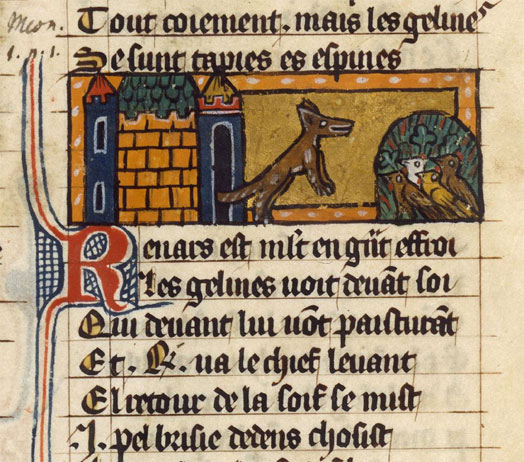 Tout coiement. mais les gelines
Se sunt tapies es espines
Renars est ml't en g̃nt effroi
Les gelines uoit deuãt soi
Qui deuant lui uõt paisturãt
Et . R. ua le chief leuant
El retour de la soif se mist
.I. pel brisie dedens choisist